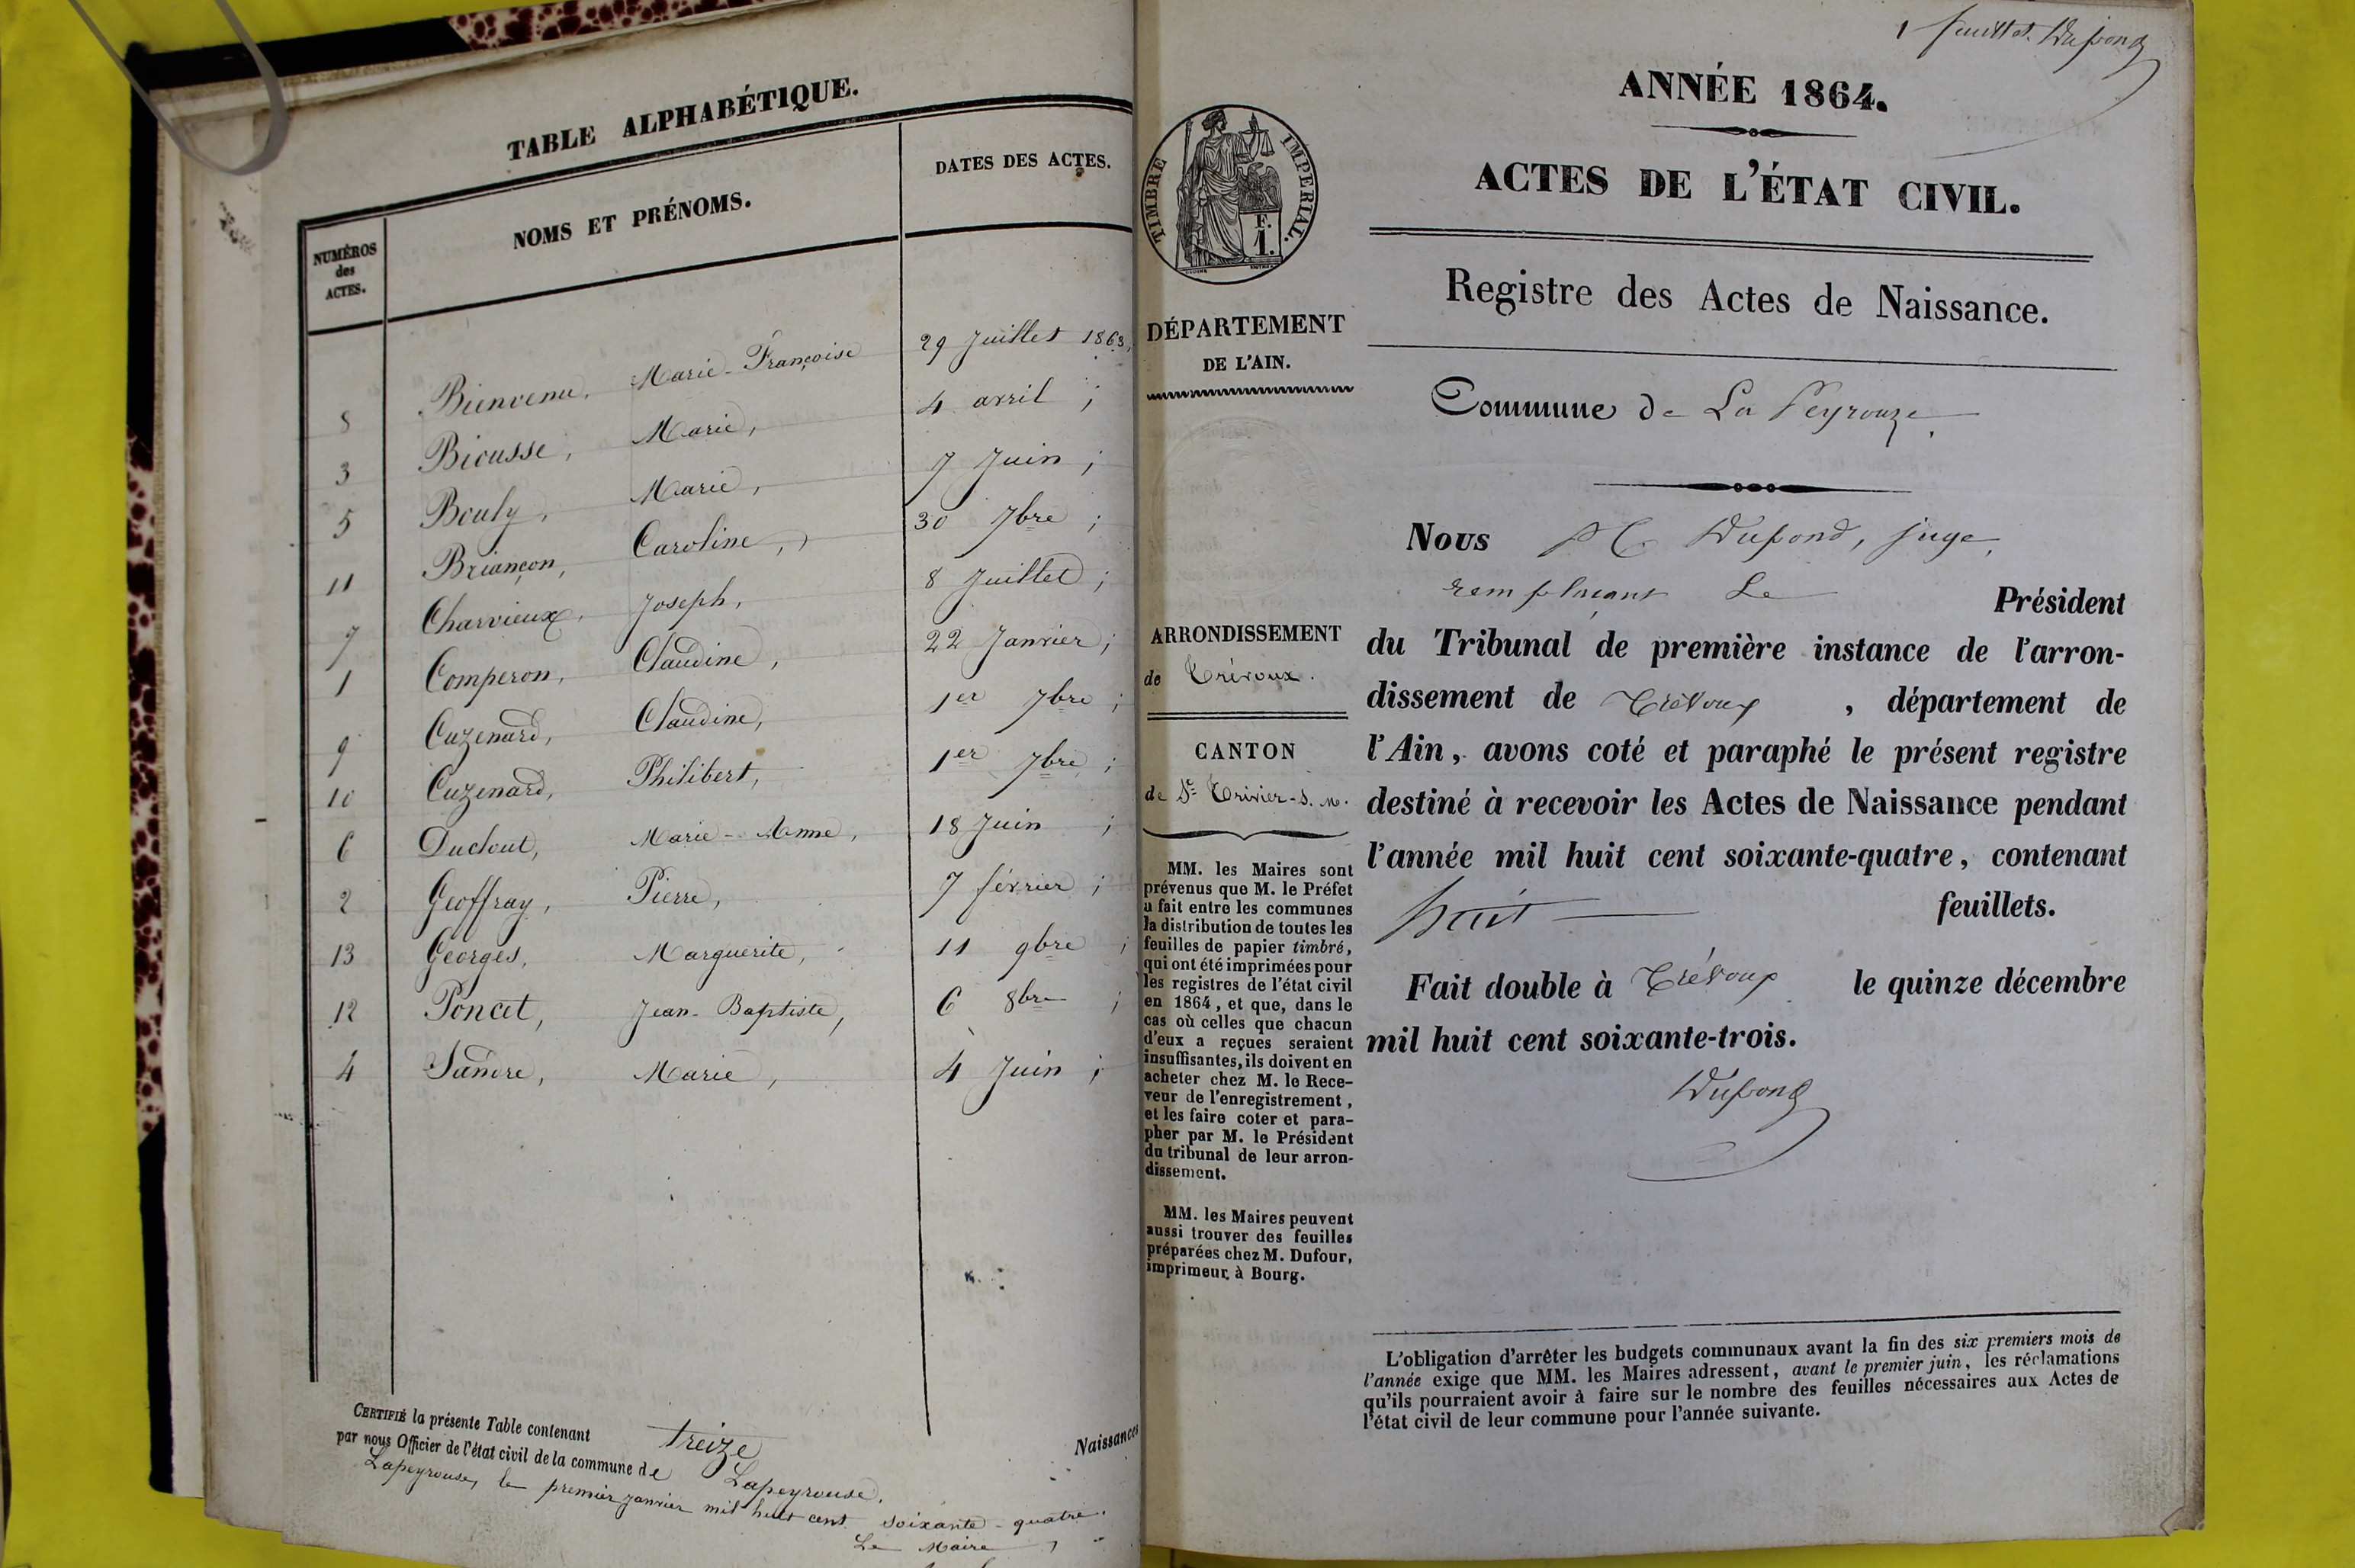 TABLE ALPHABÉTIQUE.
NUMÉROS des ACTES. NOMS ET PRÉNOMS. DATES DES ACTES.
8 Bienvenu, Marie-Françoise 29 Juillet 1863,
3 Biousse, Marie, 4 avril ;
5 Bouly, Marie, 7 Juin ;
11 Briançon, Caroline, 30 7bre ;
7 Charvieux, Joseph, 8 Juillet ;
1 Comperon, Claudine, 22 Janvier ;
9 Cuzenard, Claudine, 1er 7bre ;
10 Cuzenard, Philibert, 1er 7bre ;
6 Duclout, Marie-Anne, 18 Juin ;
2 Geoffray, Pierre, 7 février ;
13 Georges, Marguerite, 11 9bre ;
12 Poncet, Jean-Baptiste, 6 8bre ;
4 Sandre, Marie, 4 Juin ;
CERTIFIÉ la présente Table contenant treize
par nous Officier de l'état civil de la commune de Lapeyrouse.
Lapeyrouse, le premier janvier mil huit cent soixante-quatre.
Le Maire,
Naissances
1 feuillet. Dupond
ANNÉE 1864.
ACTES DE L'ÉTAT CIVIL.
Registre des Actes de Naissance.
TIMBRE IMPERIAL.
F.
1.
DÉPARTEMENT
DE L'AIN.
ARRONDISSEMENT
de Trévoux.
CANTON
de St Trivier-S. M.
MM. les Maires sont
prévenus que M. le Préfet
a fait entre les communes
la distribution de toutes les
feuilles de papier timbré,
qui ont été imprimées pour
les registres de l'état civil
en 1864, et que, dans le
cas où celles que chacun
d'eux a reçues seraient
insuffisantes, ils doivent en
acheter chez M. le Rece-
veur de l'enregistrement,
et les faire coter et para-
pher par M. le Président
du tribunal de leur arron-
dissement.
MM. les Maires peuvent
aussi trouver des feuilles
préparées chez M. Dufour,
imprimeur à Bourg.
Commune de La Peyrouze
Nous Dupond, juge,
remplaçant Le Président
du Tribunal de première instance de l'arron-
dissement de Trévoux, département de
l'Ain, avons coté et paraphé le présent registre
destiné à recevoir les Actes de Naissance pendant
l'année mil huit cent soixante-quatre, contenant
huit feuillets.
Fait double à Trévoux le quinze décembre
mil huit cent soixante-trois.
Dupond
L'obligation d'arrêter les budgets communaux avant la fin des six premiers mois de
l'année exige que MM. les Maires adressent, avant le premier juin, les réclamations
qu'ils pourraient avoir à faire sur le nombre des feuilles nécessaires aux Actes de
l'état civil de leur commune pour l'année suivante.